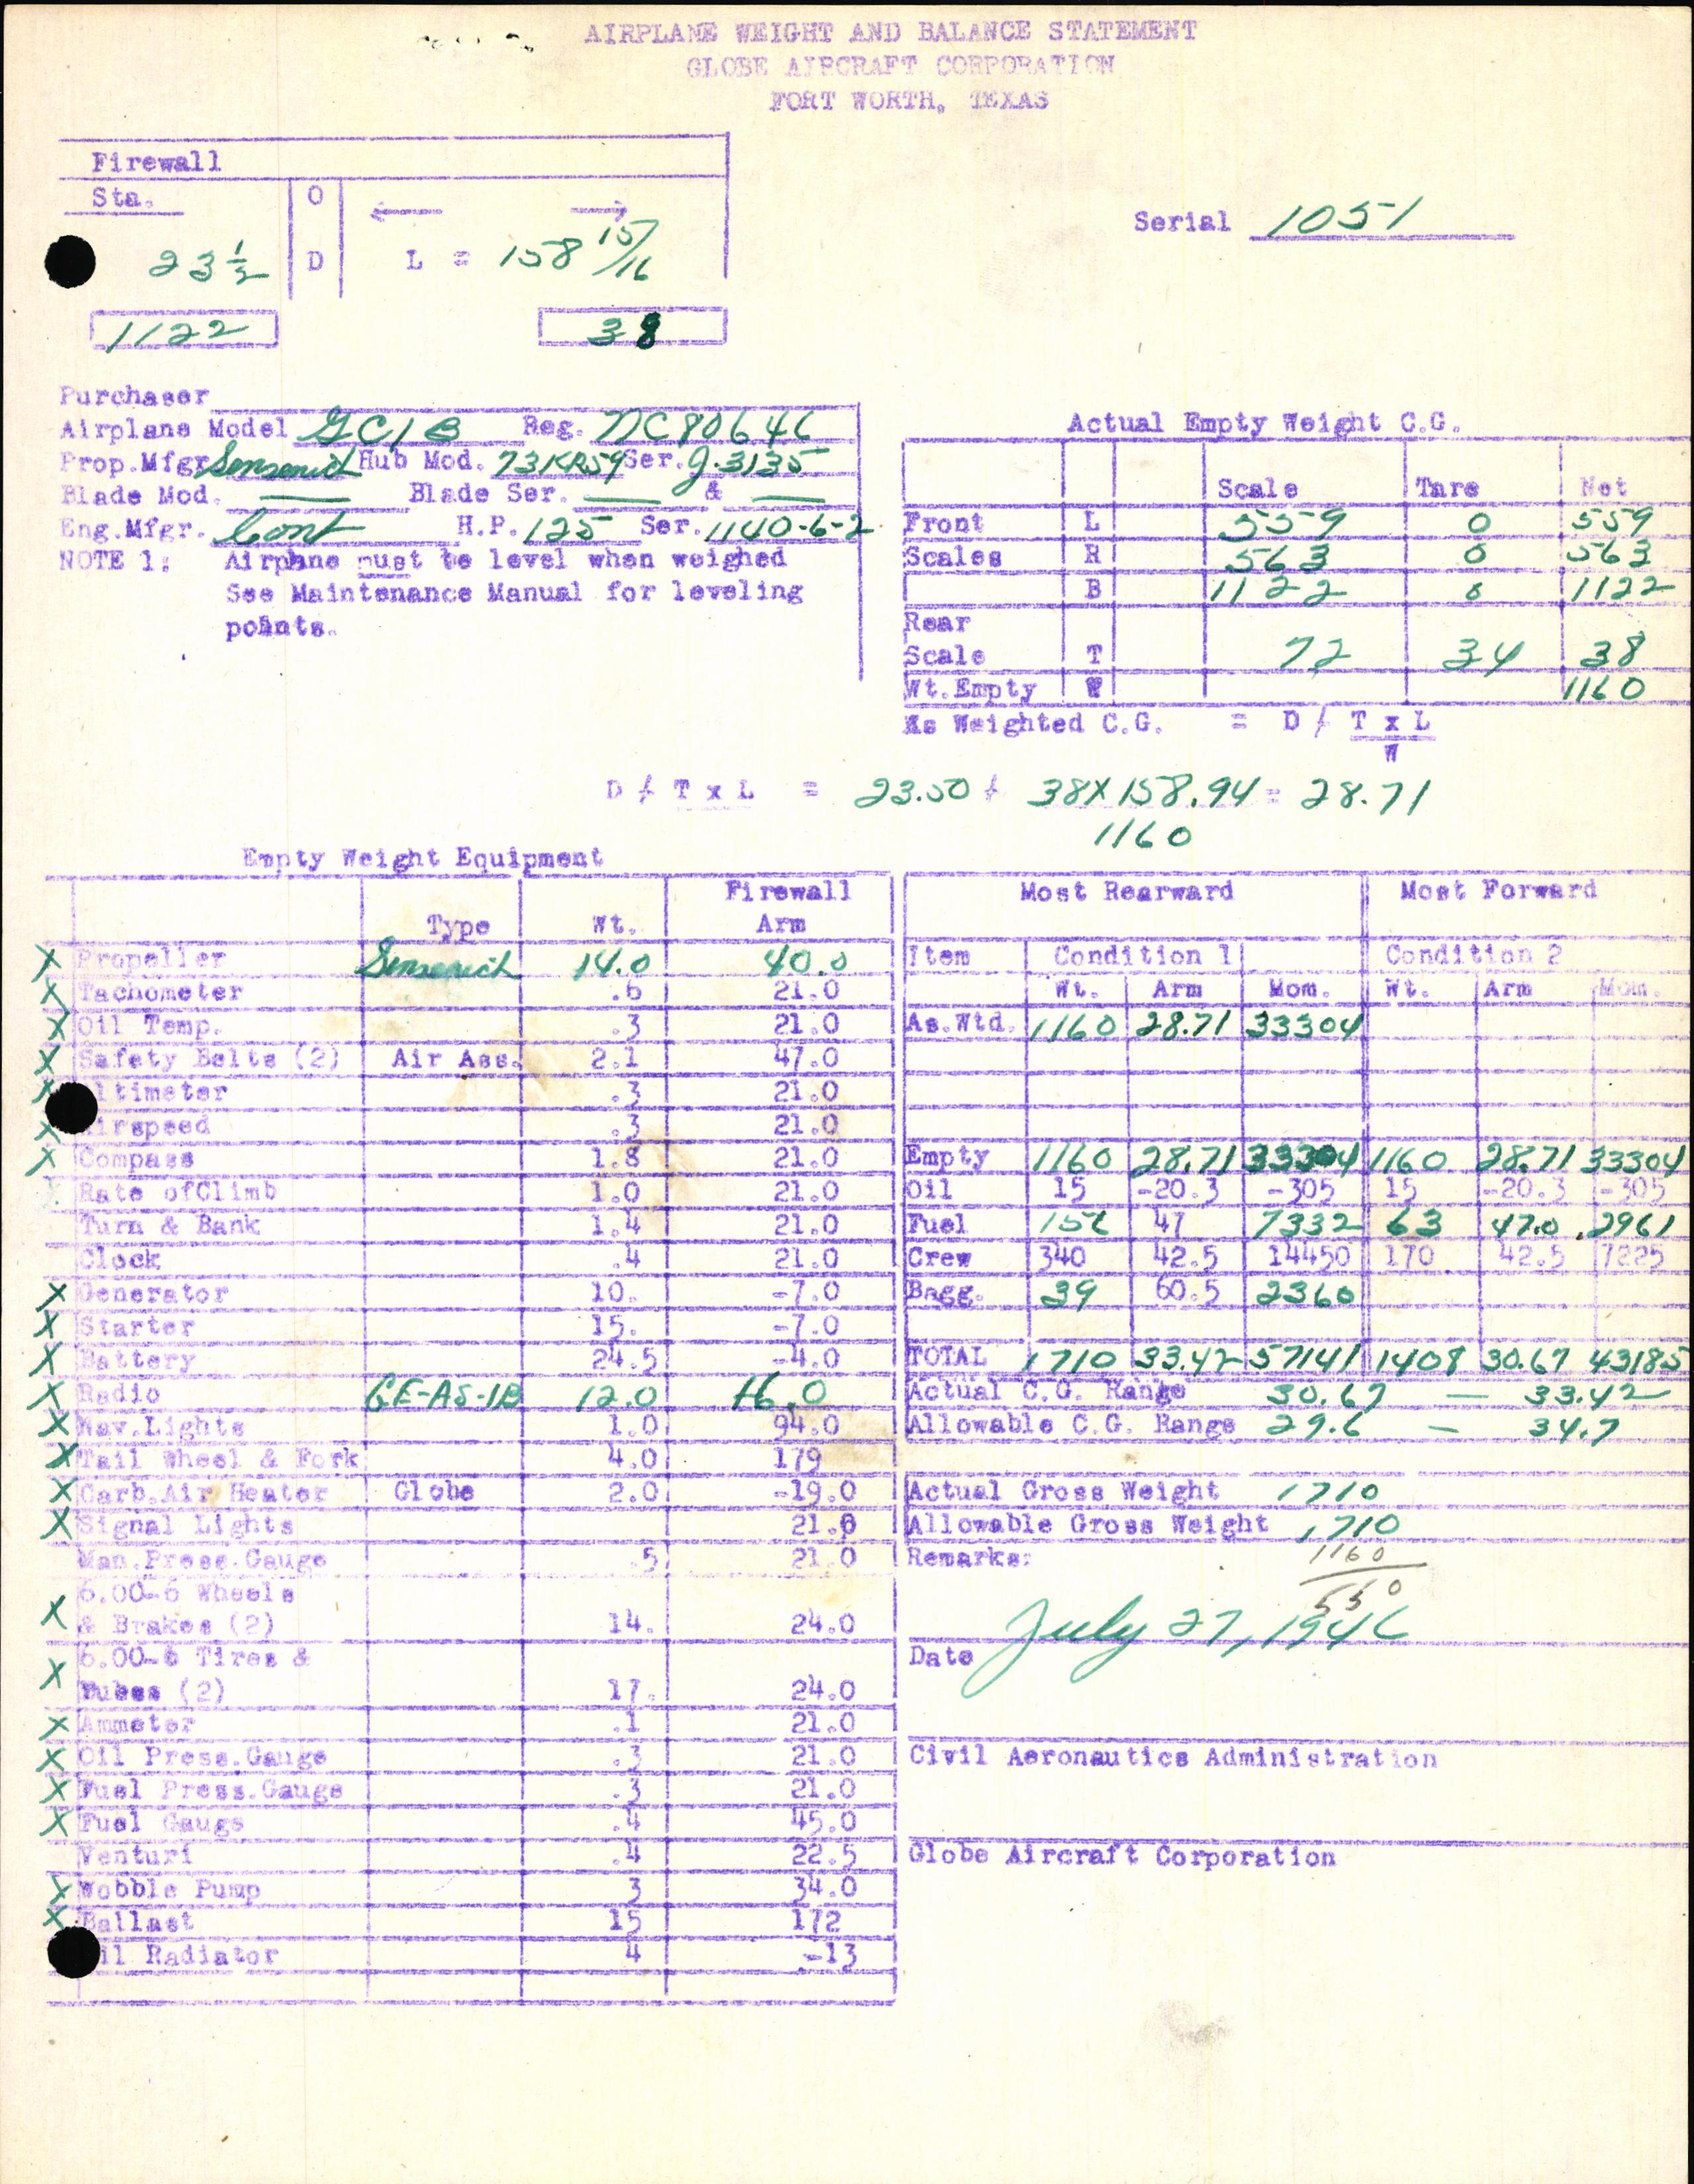 AIRPLANE WEIGHT AND BALANCE STATEMENT
GLOBE AIRCRAFT CORPORATION
FORT WORTH, TEXAS
Firewall
Sta. O
23 1/2 D L = 158 15/16
1122 38
Serial 1051
Purchaser
Airplane Model GC1B Reg. NC80646
Prop.Mfgr Sensenich Hub Mod. 73KR59 Ser. J.3135
Blade Mod. — Blade Ser. — & —
Eng.Mfgr. Cont H.P. 125 Ser. 1140-6-2
NOTE 1: Airplane must be level when weighed
See Maintenance Manual for leveling
points.
Actual Empty Weight C.G.
Scale Tare Net
Front L 559 0 559
Scales R 563 0 563
B 1122 0 1122
Rear
Scale T 72 34 38
Wt.Empty W 1160
As Weighted C.G. = D / T x L
W
D / T x L = 23.50 / 38X158.94 = 28.71
1160
Empty Weight Equipment
Type Wt. Firewall Arm
X Propeller Sensenich 14.0 40.0
X Tachometer .6 21.0
X Oil Temp. .3 21.0
X Safety Belts (2) Air Ass. 2.1 47.0
X ltimeter .3 21.0
X irspeed .3 21.0
X Compass 1.8 21.0
Rate ofClimb 1.0 21.0
Turn & Bank 1.4 21.0
Clock .4 21.0
X Generator 10. -7.0
X Starter 15. -7.0
X Battery 24.5 -4.0
X Radio GE-AS-1B 12.0 16.0
X Nav.Lights 1.0 94.0
X Tail Wheel & Fork 4.0 179
X Carb.Air Heater Globe 2.0 -19.0
X Signal Lights 21.0
Man.Press.Gauge .5 21.0
6.00-6 Wheels
X & Brakes (2) 14. 24.0
6.00-6 Tires &
X Tubes (2) 17. 24.0
X Ammeter .1 21.0
X Oil Press.Gauge .3 21.0
X Fuel Press.Gauge .3 21.0
X Fuel Gauge .4 45.0
Venturi .4 22.5
X Wobble Pump 3 34.0
X Ballast 15 172
il Radiator 4 -13
Most Rearward Most Forward
Item Condition 1 Condition 2
Wt. Arm Mom. Wt. Arm Mom.
As.Wtd. 1160 28.71 33304
Empty 1160 28.71 33304 1160 28.71 33304
Oil 15 -20.3 -305 15 -20.3 -305
Fuel 156 47 7332 63 47.0 2961
Crew 340 42.5 14450 170 42.5 7225
Bagg. 39 60.5 2360
TOTAL 1710 33.42 57141 1408 30.67 43185
Actual C.G. Range 30.67 — 33.42
Allowable C.G. Range 29.6 — 34.7
Actual Gross Weight 1710
Allowable Gross Weight 1710
Remarks: 1160
550
July 27, 1946
Date
Civil Aeronautics Administration
Globe Aircraft Corporation